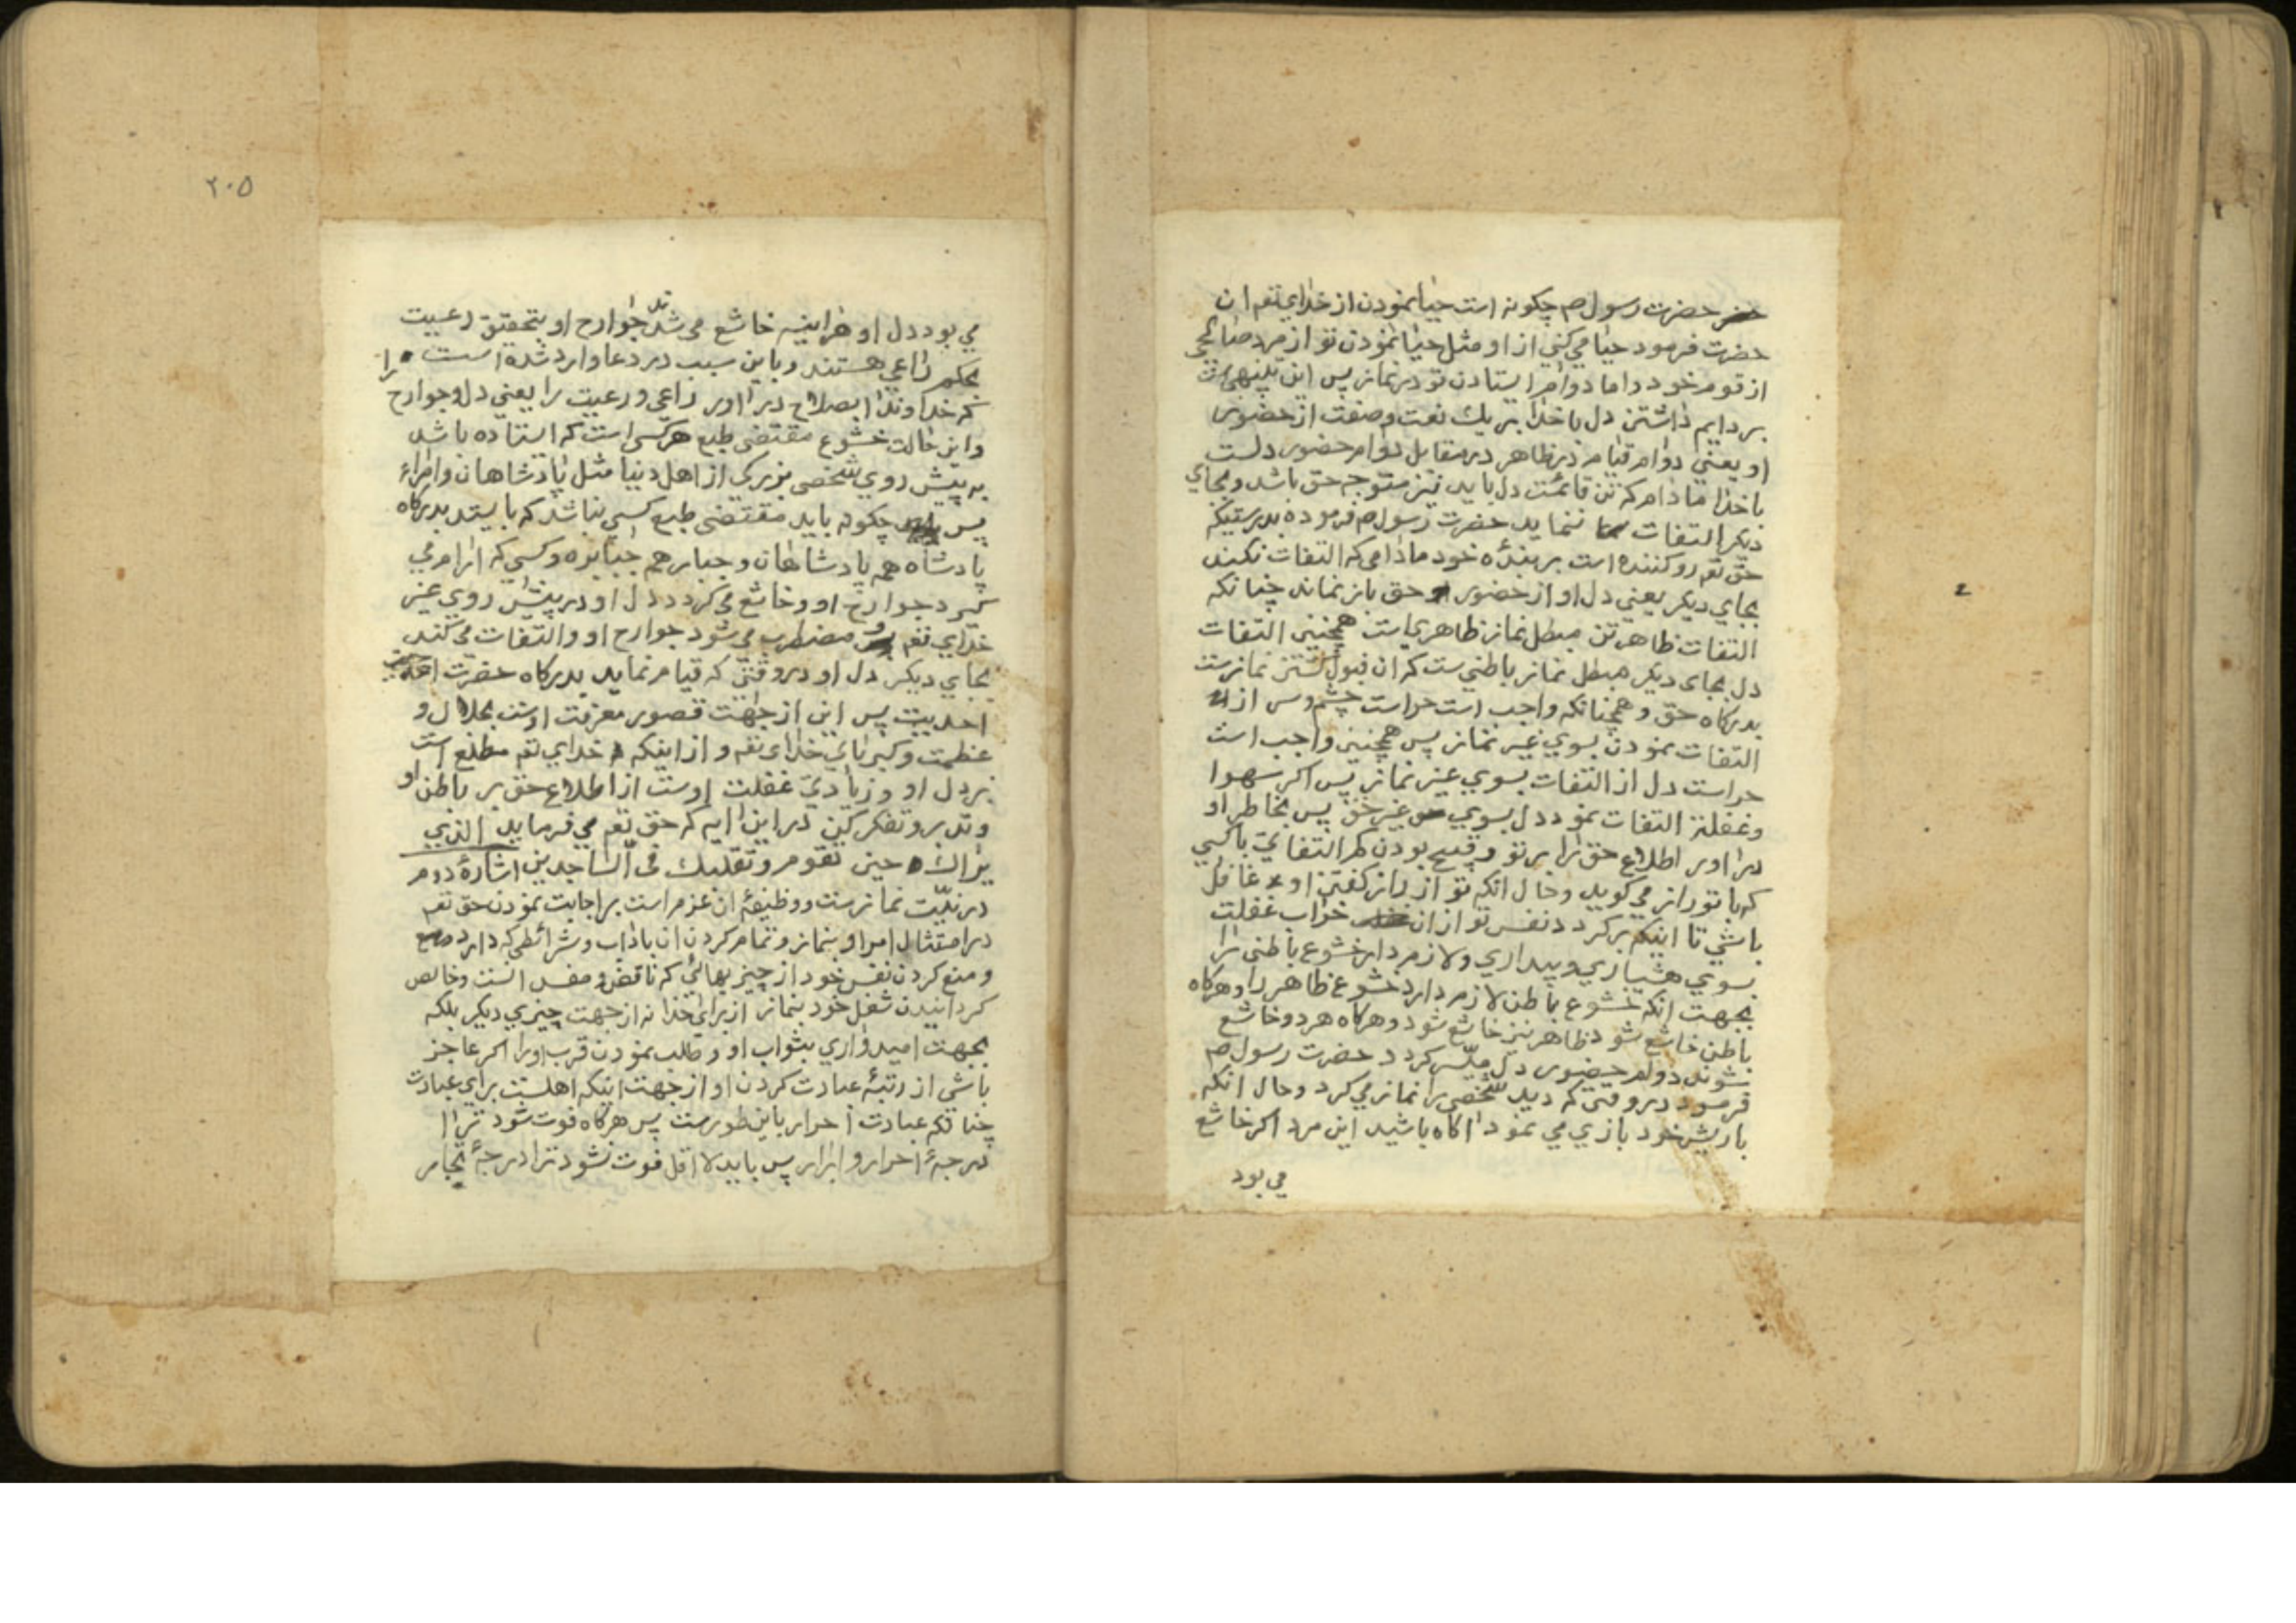 حضرت رسول ص چكونه است حيا نمودن از خداي تعم ان
حضرت فرمود حيا مي كني از او مثل حيا نمودن تو از مرد صالحي
از قوم خود و اما دوام ايستادن تو در نماز پس اين تنبيهي است
بر دايم داشتن دل با خدا بر يك نعت و صفت از حضور
او يعني دوام قيام در ظاهر در مقابل دوام حضور دلست
با خدا ما دام كه تن قائمست دل بايد نيز متوجه حق باشد و بجاي
ديكر التفات ننمايد حضرت رسول ص فرموده بدرستيكه
حق تعم رو كننده است بر بنده خود ما دامي كه التفات نكند
بجاي ديكر يعني دل او از حضور حق باز نماند چنانكه
التفات ظاهر تن مبطل نماز ظاهري است همچنين التفات
دل بجاى ديكر مبطل نماز باطني ست كه ان قبول كشتن نمازست
بدركاه حق و همچنانكه واجب است حراست چشم و سر از
التفات نمودن بسوي غير نماز پس همچنين واجب است
حراست دل از التفات بسوي غير نماز پس اكر سهوا
و غفلتا التفات نمود دل بسوي غير حق پس بخاطر او
در اور اطلاع حق را بر تو و قبيح بودن كم التفاتي با كسي
كه با تو راز مي كويد و حال انكه تو از راز كفتن او غافل
باشي تا اينكه بر كردد نفس تو از ان خواب غفلت
بسوي هشياري و بيداري و لازم دار خشوع باطني را
بجهت انكه خشوع باطن لازم دارد خشوع ظاهر را و هركاه
باطن خاشع شود ظاهر نيز خاشع شود و هركاه هر دو خاشع
شوند دوام حضور دل ميسر كردد حضرت رسول ص
فرمود در وقتي كه ديد شخصي را نماز مي كرد و حال انكه
با ريش خود بازي مي نمود اكاه باشيد اين مرد اكر خاشع
مي بود
٢٠٥
مي بود دل او هراينه خاشع مي شدند جوارح او بتحقيق رعيت
بحكم راعي هستند و باين سبب در دعا وارد شده است
كه خداوندا بصلاح در اور راعي و رعيت را يعني دل و جوارح را
و اين حالت خشوع مقتضي طبع هر كسي است كه ايستاده باشد
به پيش روي شخصي بزركي از اهل دنيا مثل پادشاهان و امراء
پس چكونه بايد مقتضي طبع كسي نباشد كه بايستد بدركاه
پادشاه همه پادشاهان و جبار همه جبابره و كسي كه ارام مي
كيرد جوارح او و خاشع مي كردد دل او در پيش روي غير
خداي تعم و مضطرب مي شود جوارح او و التفات مي كند
بجاي ديكر دل او در وقتي كه قيام نمايد بدركاه حضرت
احديت پس اين از جهت قصور معرفت اوست بجلال و
عظمت و كبرياي خداى تعم و از اينكه خداي تعم مطلع است
بر دل او و زيادتي غفلت اوست از اطلاع حق بر باطن او
و تدبر و تفكر كن در اين ايه كه حق تعم مي فرمايد الذي
يراك حين تقوم و تقلبك في الساجدين اشارهٔ دوم
در نيّت نمازست و وظيفهٔ ان عزم است بر اجابت نمودن حق تعم
در امتثال امر او بنماز و تمام كردن ان باداب و شرائطي كه دارد
و منع كردن نفس خود از چيزيهائي كه ناقض و مفسد انست و خالص
كردانيدن شغل خود بنماز از براي خدا نه از جهت چيزي ديكر بلكه
بجهت اميدواري بثواب او و طلب نمودن قرب او را اكر عاجز
باشي از رتبهٔ عبادت كردن او از جهت اينكه اهلست براي عبادت
چنانكه عبادت احرار باين طورست پس هركاه فوت شود ترا
درجهٔ احرار و ابرار پس بايد لا اقل فوت نشود ترا درجهٔ تجار